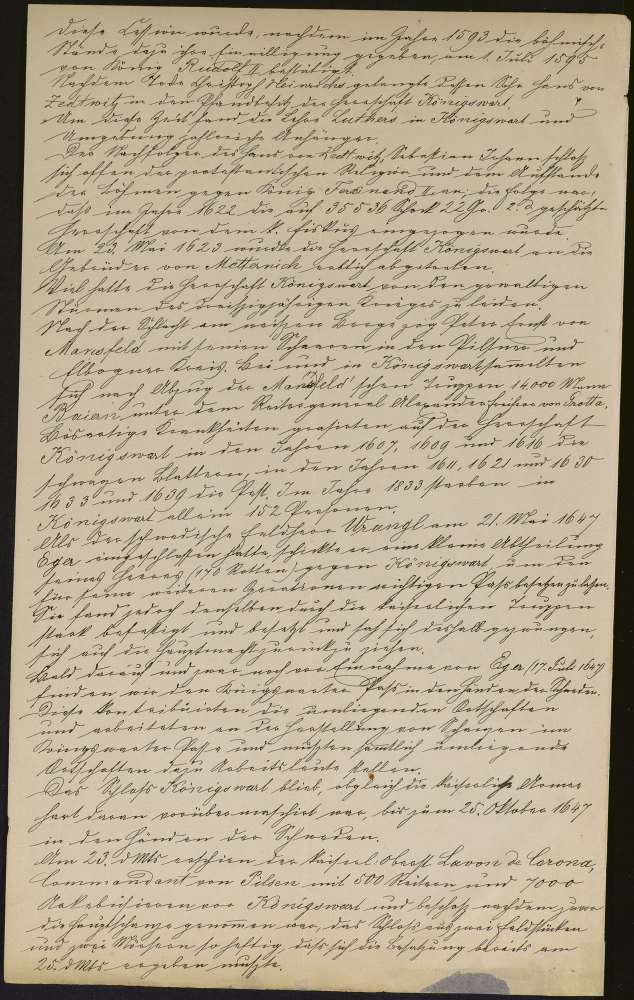 Diese Cession wurde, nachdem im Jahre 1593 die böhmisch.
Stände dazu ihre Einwilligung gegeben, am 1. Juli 1595
von König Rudolf II bestätigt.
Nachdem Tode Christoph Heinrichs gelangte dessen Sohn Hans von
Zedtwitz in den Pfandbesitz der Herrschaft Königswart.
Um diese Zeit fand die Lehre Luthers in Königswart und
Umgebung zahlreiche Anhänger.
Der Nachfolger des Hans von Zedtwitz, Sebastian Johann, schloß
sich offen der protestantischen Religion und dem Aufstande
der Böhmen gegen König Ferdinand II an; die Folge war,
daß im Jahre 1622 die auf 35536 Schock 22 Gr. 2 d geschätzte
Herrschaft von dem k. Fiskus eingezogen wurde.
Am 23. Mai 1623 wurde die Herrschaft Königswart an die
Gebrüder von Metternich erblich abgetreten.
Viel hatte die Herrschaft Königswart von den gewaltigen
Stürmen des dreißigjährigen Krieges zu leiden.
Nach der Schlacht am weißen Berge zog Peter Ernst von
Mansfeld mit seinen Scharen in den Pilsner und
Elbogner Kreis. Bei und in Königswart sammelten
sich nach Abzug der Mansfeld'schen Truppen 14000 Mann
Baiern unter dem Reitergeneral Alexander Freiherr von Grotta.
Bösartige Krankheiten grassirten auf der Herrschaft
Königswart in den Jahren 1607, 1609 und 1616 die
schwarzen Blattern, in den Jahren 1611, 1621 und 1630
1633 und 1639 die Pest. Im Jahre 1833 starben in
Königswart allein 152 Personen.
Als der schwedische Feldherr Wrangl am 21. Mai 1647
Eger eingeschlossen hatte, schickte er eine kleine Abtheilung
seines Heeres (170 Rotten) gegen Königswart, um den
für seine weiteren Operationen wichtigen Pass besetzen zu lassen.
Sie fand jedoch denselben durch die kaiserlichen Truppen
stark befestigt und besetzt und sah sich deshalb gezwungen,
sich auf die Hauptmacht zurück zu ziehen.
Bald darauf und zwar noch vor Einnahme von Eger (17. Juli 1647)
finden wir den Königswarter Pass in den Händen der Schweden.
Diese kontribuirten die umliegenden Ortschaften
und arbeiteten an der Herstellung von Schanzen im
Königswarter Passe und mußten sämtlich umliegende
Ortschaften dazu Arbeitsleute stellen.
Das Schloß Königswart blieb, obgleich die kaiserliche Armee
hart daran vorübermarschirt war, bis zum 25. Oktober 1647
in den Händen der Schweden.
Am 23. d Mts erschien der kaiserl. Oberst Lavon de Cerona,
Commandant von Pilsen mit 500 Reitern und 7000
vor Königswart und beschoß nachdem zuvor
die Hauptschanze genommen war, das Schloß aus zwei Feldstücken
und zwei Mörsern so heftig, daß sich die Besatzung bereits am
25. d Mts ergeben mußte.